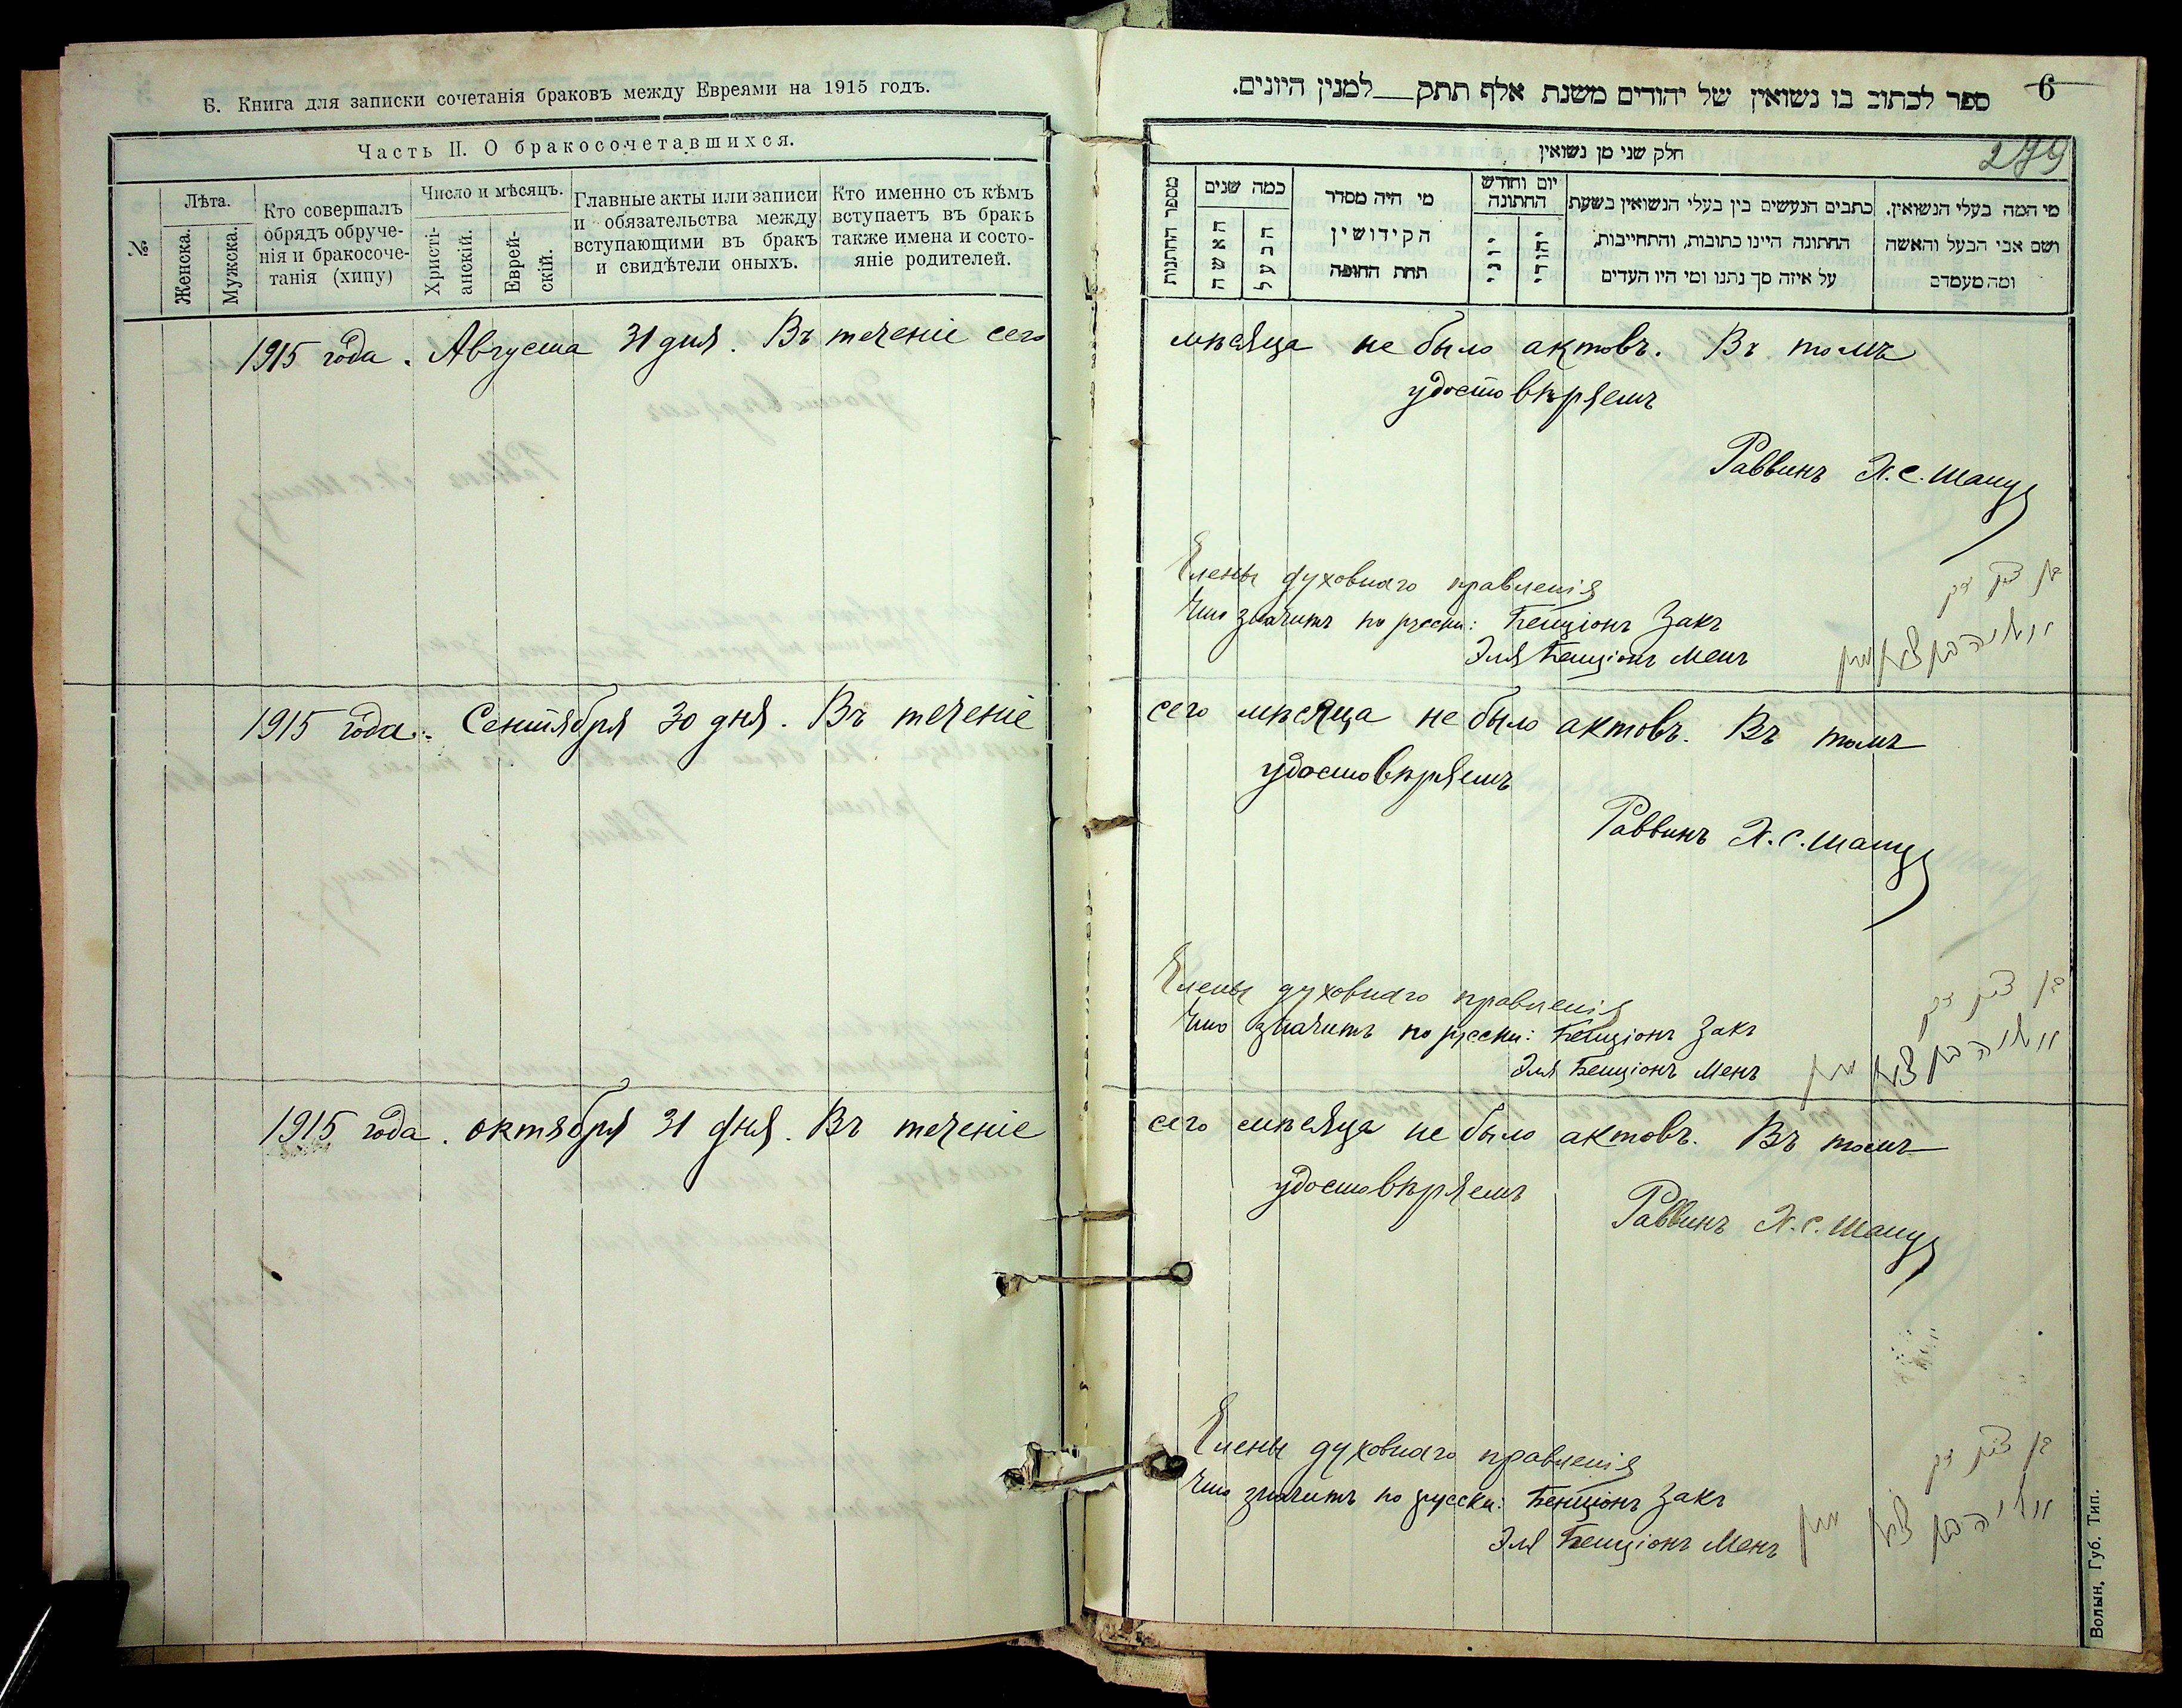 Б. Книга для записки сочетанія браковъ между Евреями на 1915 годъ.
Часть II. О бракосочетавшихся.
№
Лѣта.
Женска.
Мужска.
Кто совершалъ
обрядъ обруче-
нія и бракосоче-
танія (хипу)
Число и мѣсяцъ.
Христі-
анскій.
Еврей-
скій.
Главные акты или записи
и обязательства между
вступающими въ бракъ
и свидѣтели оныхъ.
Кто именно съ кѣмъ
вступаетъ въ бракъ
также имена и состо-
яніе родителей.
1915 года. Августа 31 дня. Въ теченіе сего
1915 года. Сентября 30 дня. Въ теченіе
1915 года. октября 31 дня. Въ теченіе
6
ספר לכתוב בו נשואין של יהודים משנת אלף תתק__למנין היונים.
279
חלק שני מן נשואין
מי המה בעלי הנשואין.
ושם אבי הבעל והאשה
ומה מעמדם
כתבים הנעשים בין בעלי הנשואין בשעת
החתונה היינו כתובות, והתחייבות,
על איזה סך נתנו ומי היו העדים
יום וחודש
החתונה
יהודי
יוני
מי היה מסדר
הקידושין
תחת החופה
כמה שנים
הבעל
האשה
מספר החתנות
мѣсяца не было актовъ. Въ томъ
удостовѣряемъ
Раввинъ Х. С. Шапу
Члены духовнаго правленія
בן ציון זק
Что значитъ по русски: Бенціонъ Закъ
Эля Бенціонъ Менъ
сего мѣсяца не было актовъ. Въ томъ
удостовѣряемъ
Раввинъ Х. С. Шапу
Члены духовнаго правленія
בן ציון זק
Что значитъ по русски: Бенціонъ Закъ
Эля Бенціонъ Менъ
сего мѣсяца не было актовъ. Въ томъ
удостовѣряемъ
Раввинъ Х. С. Шапу
Члены духовнаго правленія
בן ציון זק
Что значитъ по русски: Бенціонъ Закъ
Эля Бенціонъ Менъ
Волын. Губ. Тип.